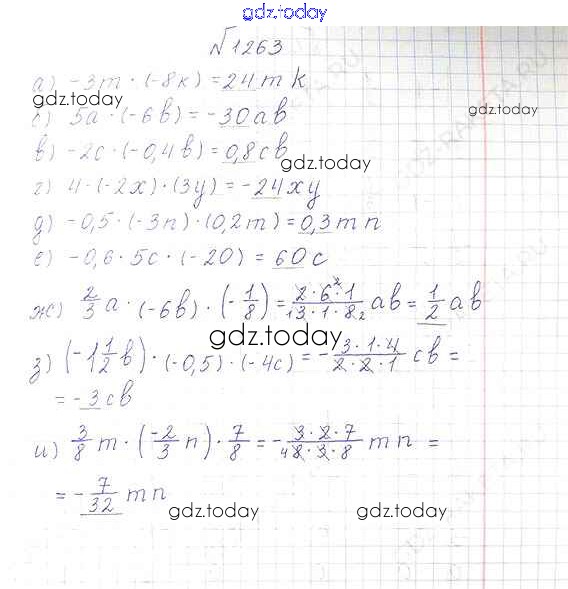 gdz.today
№1263
а) -3m · (-8к) = 24 m k
gdz.today
б) 5a · (-6b) = -30ab
gdz.today
в) -2c · (-0,4b) = 0,8cb
gdz.today
г) 4 · (-2x) · (3y) = -24xy
д) -0,5 · (-3n) · (0,2m) = 0,3mn
е) -0,6 · 5c · (-20) = 60c
ж) 2/3 a · (-6b) · (-1/8) = 2·6²·1/13·1·8₂ ab = 1/2 ab
gdz.today
з) (-1 1/2 b) · (-0,5) · (-4c) = - 3·1·4/2·2·1 cb =
= -3cb
и) 3/8 m · (-2/3 n) · 7/8 = - 3·2·7/₄8·3·8 mn =
= - 7/32 mn
gdz.today gdz.today